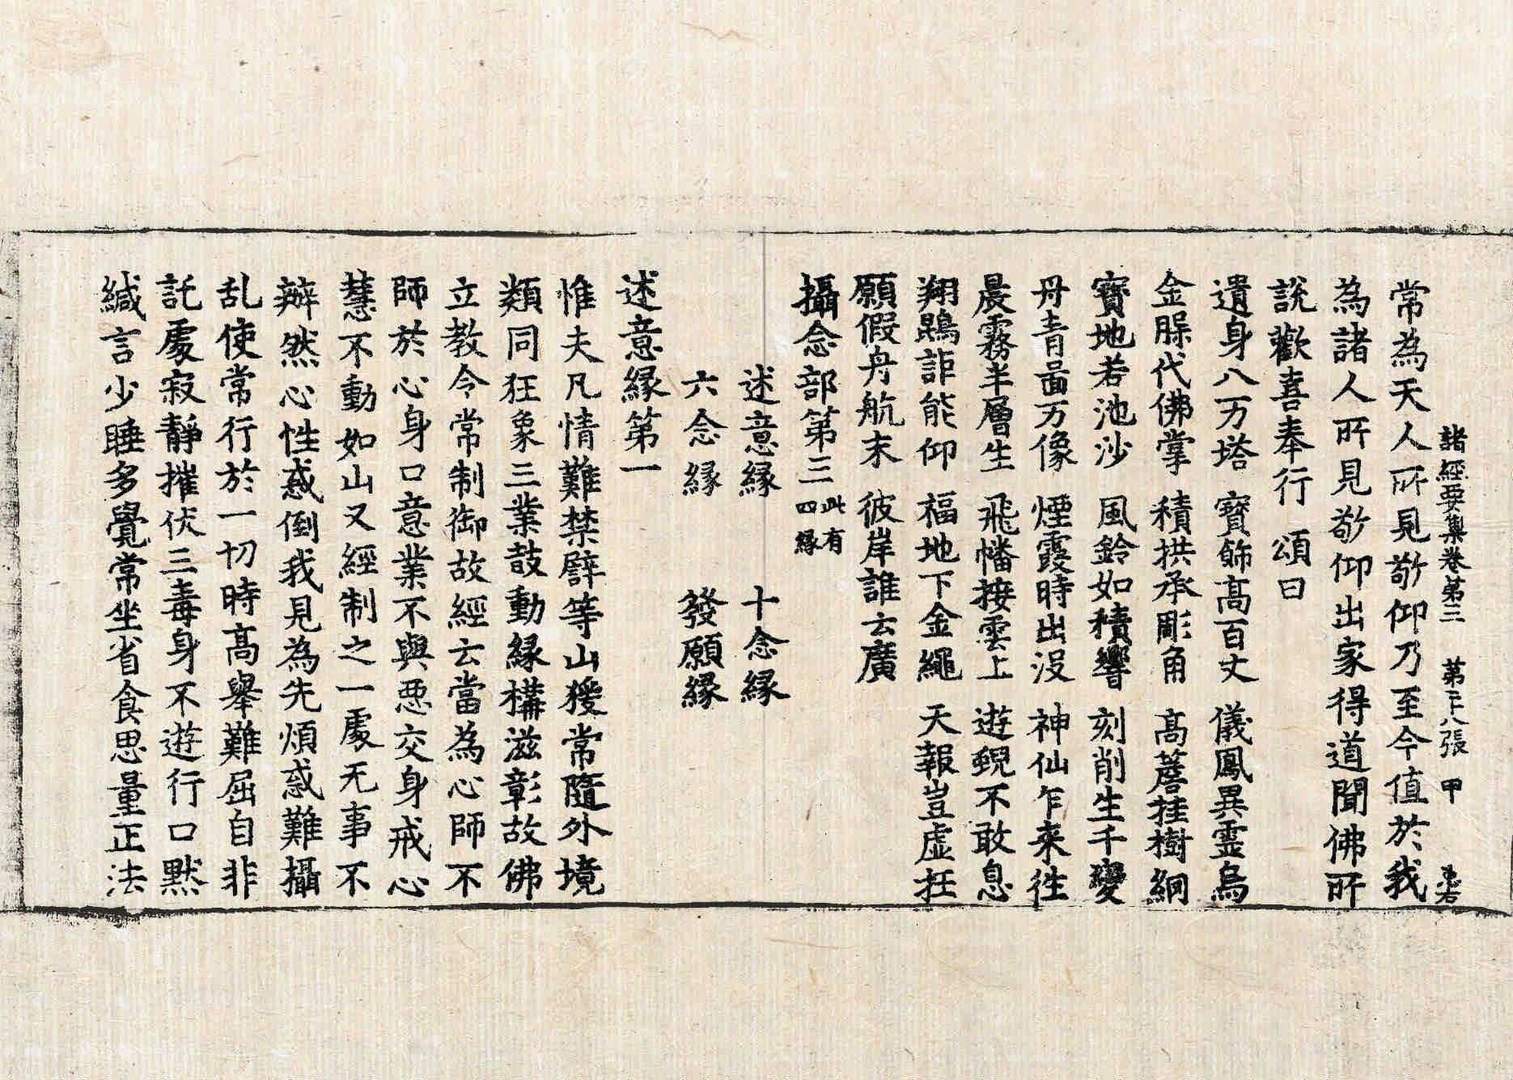 諸經要集卷第三　第二十八張　甲
常為天人所見敬仰乃至今值於我
為諸人所見敬仰出家得道聞佛所
說歡喜奉行　頌曰
遺身八万塔　寶飾高百丈　儀鳳異靈烏
金䐗代佛掌　積拱承彫角　高簷挂樹網
寶地若池沙　風鈴如積響　刻削生千變
丹青啚万像　煙霞時出沒　神仙乍来往
晨霧半層生　飛幡接雲上　遊鶂不敢息
翔鵾詎能仰　福地下金繩　天報豈虛抂
願假舟航末　彼岸誰云廣
攝念部第三此有四緣
述意緣　十念緣
六念緣　發願緣
述意緣第一
惟夫凡情難禁譬等山猨常隨外境
類同狂象三業鼓動緣構滋彰故佛
立教令常制御故經云當為心師不
師於心身口意業不與惡交身戒心
慧不動如山又經制之一處无事不
辦然心性惑倒我見為先煩惑難攝
乱使常行於一切時高舉難屈自非
託處寂靜摧伏三毒身不遊行口默
緘言少睡多覺常坐省食思量正法